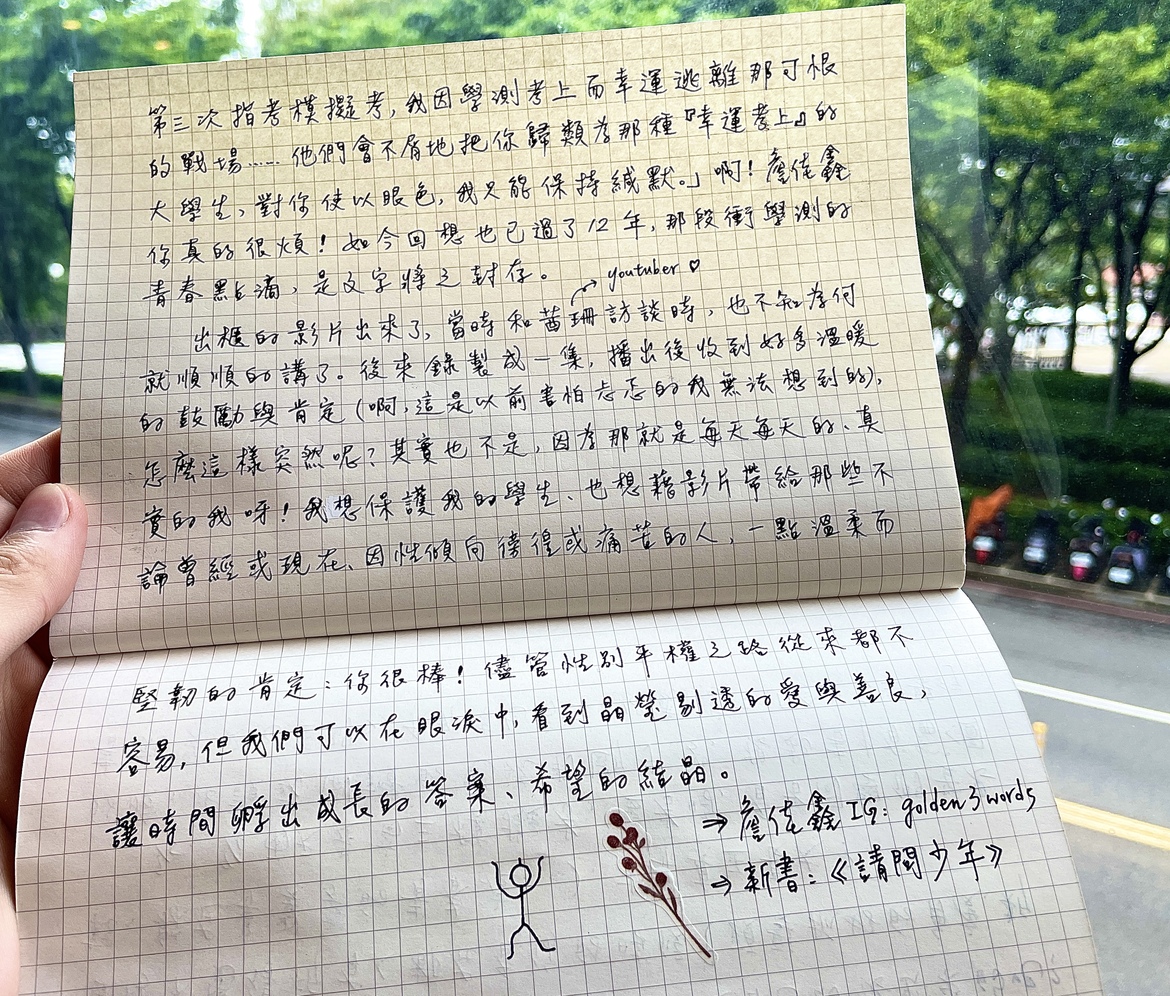 第三次指考模擬考，我因學測考上而幸運逃離那可恨
的戰場……他們會不屑地把你歸類為那種『幸運考上』的
大學生，對你使以眼色，我只能保持緘默。」啊！詹佳鑫
你真的很煩！如今回想也已過了12年，那段衝學測的
青春點滴，是文字將之封存。
youtuber ♡
出櫃的影片出來了，當時和茜珊訪談時，也不知為何
就順順的講了。後來錄製成一集，播出後收到好多溫暖
的鼓勵與肯定（啊，這是以前害怕忐忑的我無法想到的），
怎麼這樣突然呢？其實也不是，因為那就是每天每天的、真
實的我呀！我想保護我的學生、也想藉影片帶給那些不
論曾經或現在、因性傾向徬徨或痛苦的人，一點溫柔而
堅韌的肯定：你很棒！儘管性別平權之路從來都不
容易，但我們可以在眼淚中，看到晶瑩剔透的愛與善良，
讓時間孵出成長的答案、希望的結晶。
⇒ 詹佳鑫 IG: golden3words
⇒ 新書：《請問少年》